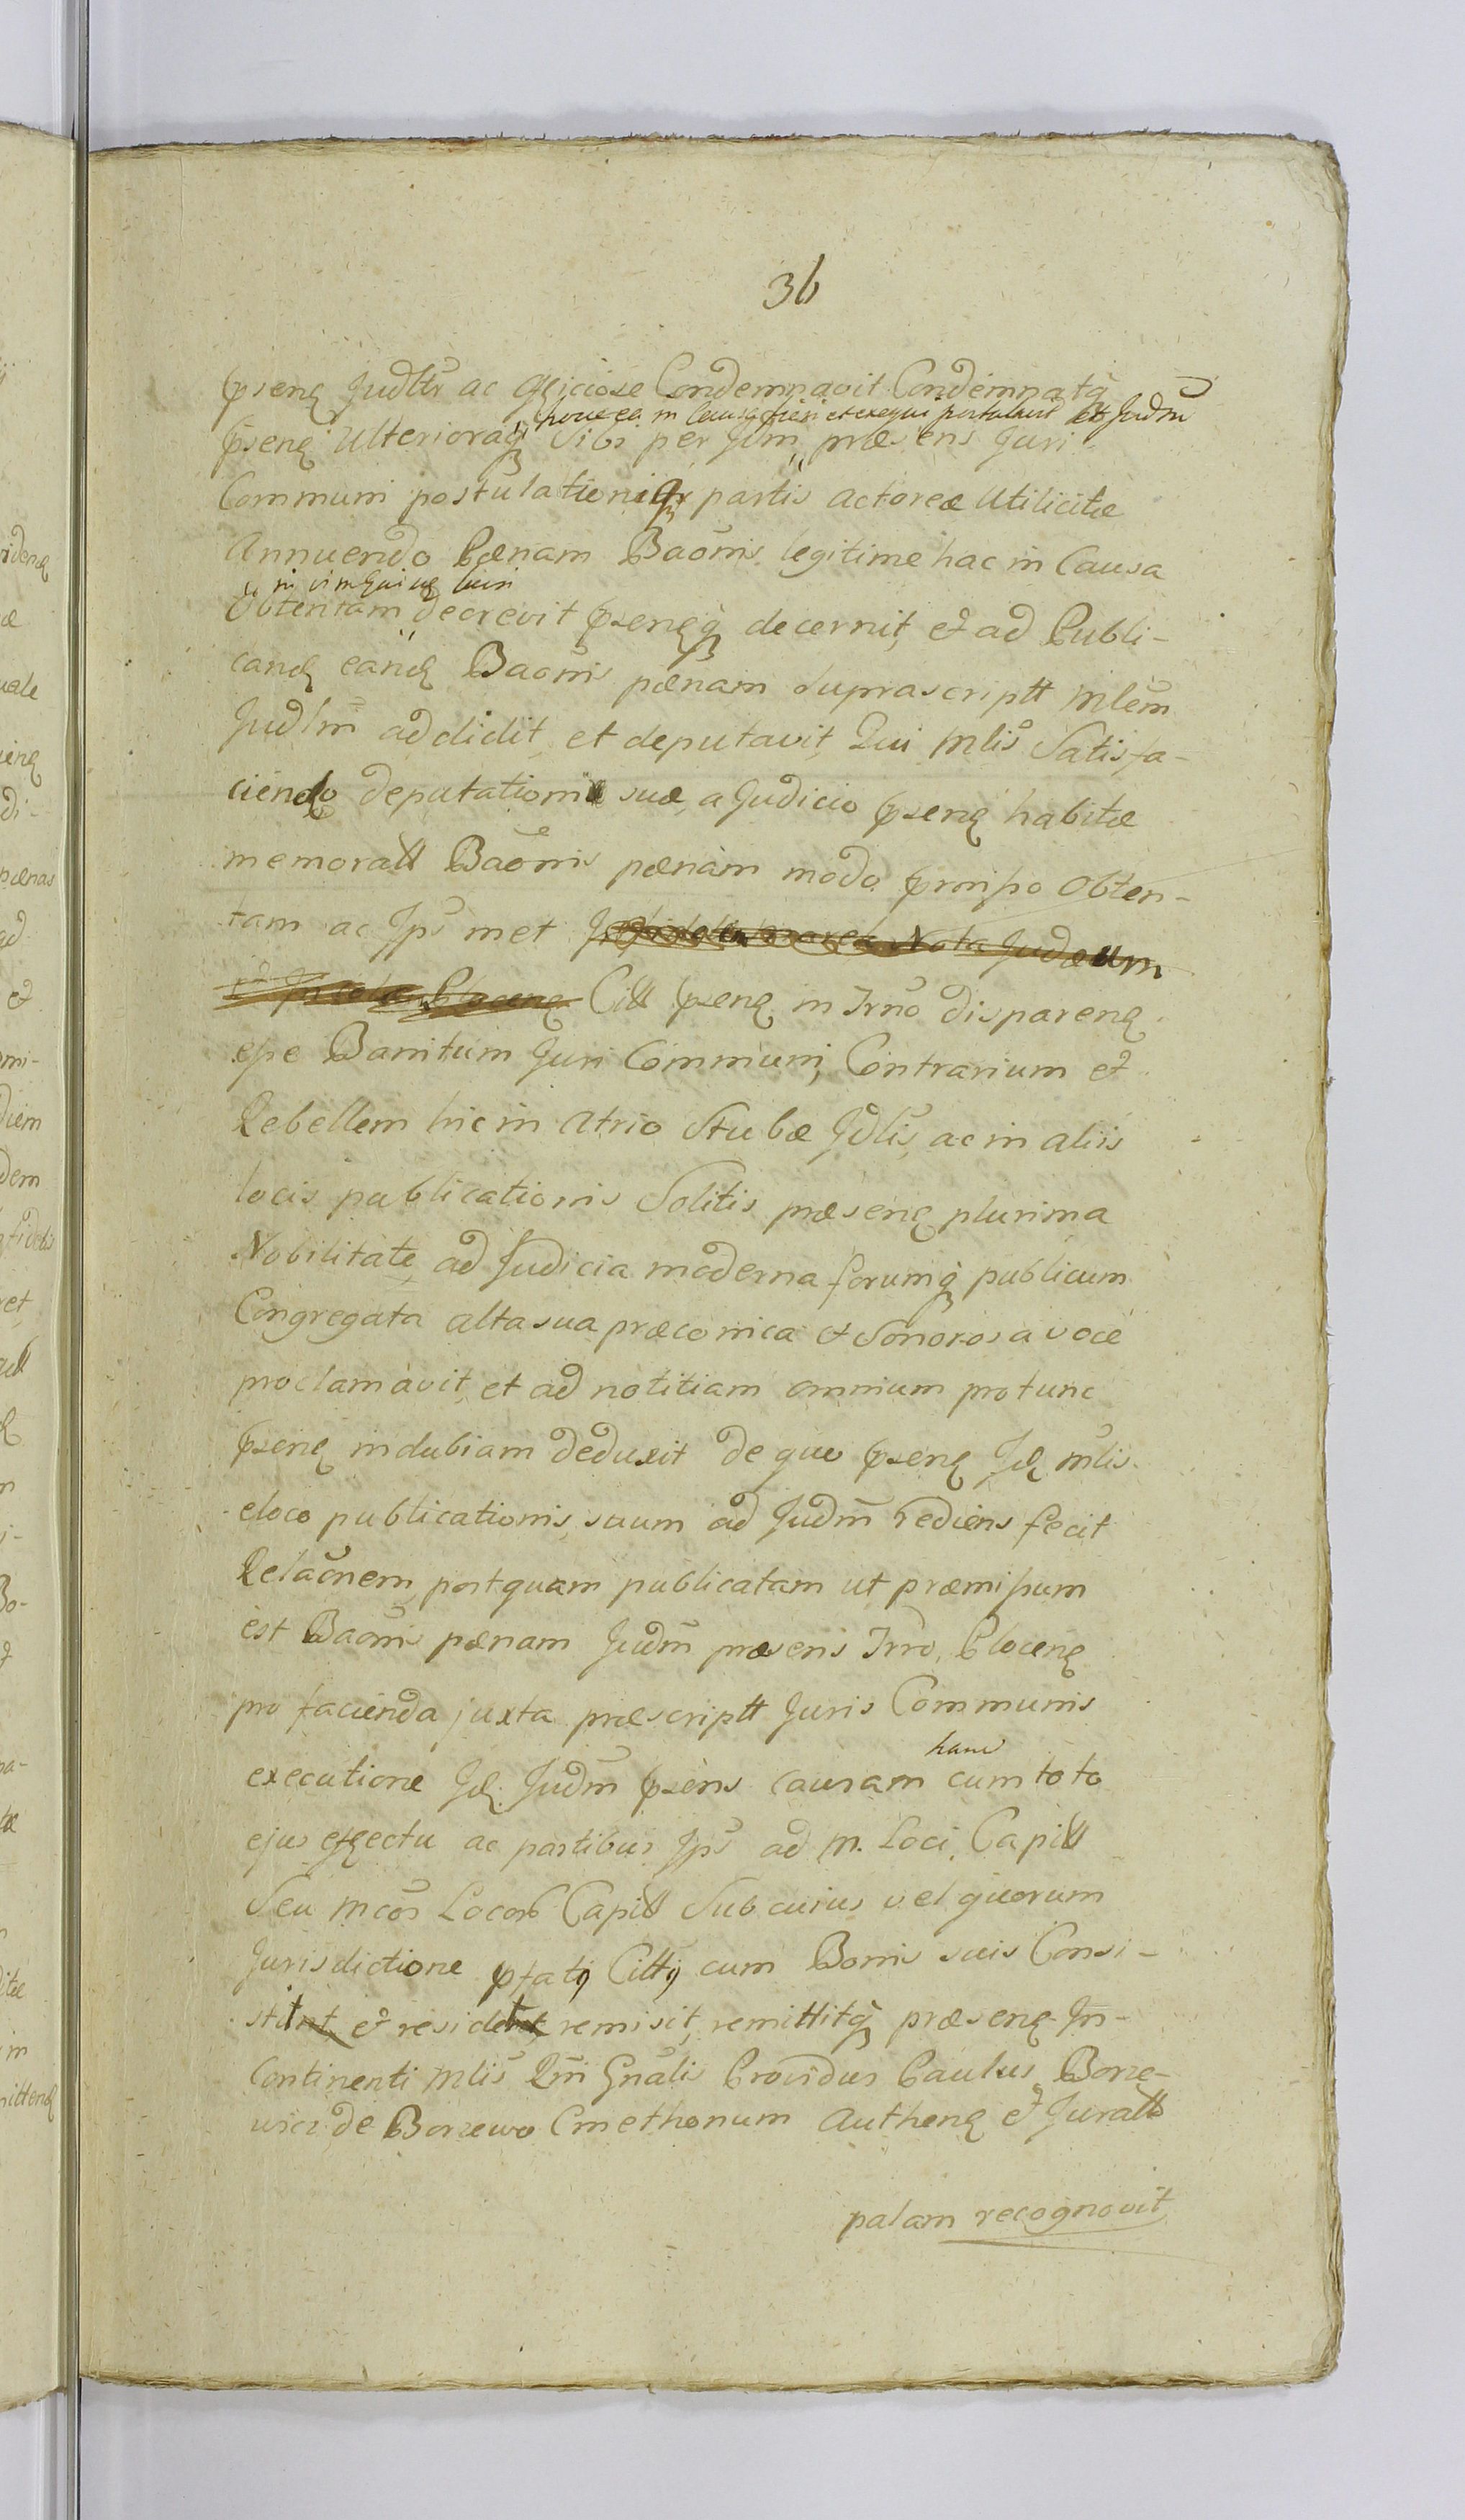 36
psenq Judltr ac officiose Condemnavit Condemnatq
hoc ea in Causa fieri et exequi postulavit et Judm
psenq Ulterioraq Sibi per Jdm præsens Juri
Communi postulationiq partis actoreæ Utilicitæ
Annuendo Pænam Baonis legitime hac in Causa
in vim luin
Obtentam decrevit psenqq decernit, et ad Publi-
canq eanq Baonis pænam suprascriptt Mlem
Judlm addidit et deputavit, Qui Mlis Satisfa-
ciendo deputationi suæ, a Judicio psenq habitæ
memoratt Baonis pænam modo pmisso Obten-
tam ac Jps met
Citt psenq in Trno disparenq
esse Banitum Juri Communi, Contrarium et
Rebellem hic in Atrio Stubæ Jdlis, ac in aliis
locis publicationis Solitis præsenq plurima
Nobilitate, ad Judicia moderna forumq publicum
Congregata alta sua præconica et Sonorosa voce
proclamavit, et ad notitiam omnium pro tunc
psenq indubiam deduxit de quo psenq Jdq Mlis
eloco publicationis, suum ad Judm rediens fecit
Relaonem, postquam publicatam ut præmissum
est Baonis pænam Judm præsens Trrō, Plocenq
pro facienda juxta præscriptt Juris Communis
hanc
executione Jdq Judm psens causam cum toto
ejus effectu ac partibus Jps ad M. Loci Capitt
Seu Mcos Locorb Capitt Sub cuius vel quorum
Jurisdictione pfatq Cittq cum Bonis suis Consi-
stit et residet, remisit, remittitq præsenq In-
continenti Mlis Rni Gnalis Providus Paulus Borze-
wicz de Borzewo Cmethonum Authenq et Juratt
palam recognovit